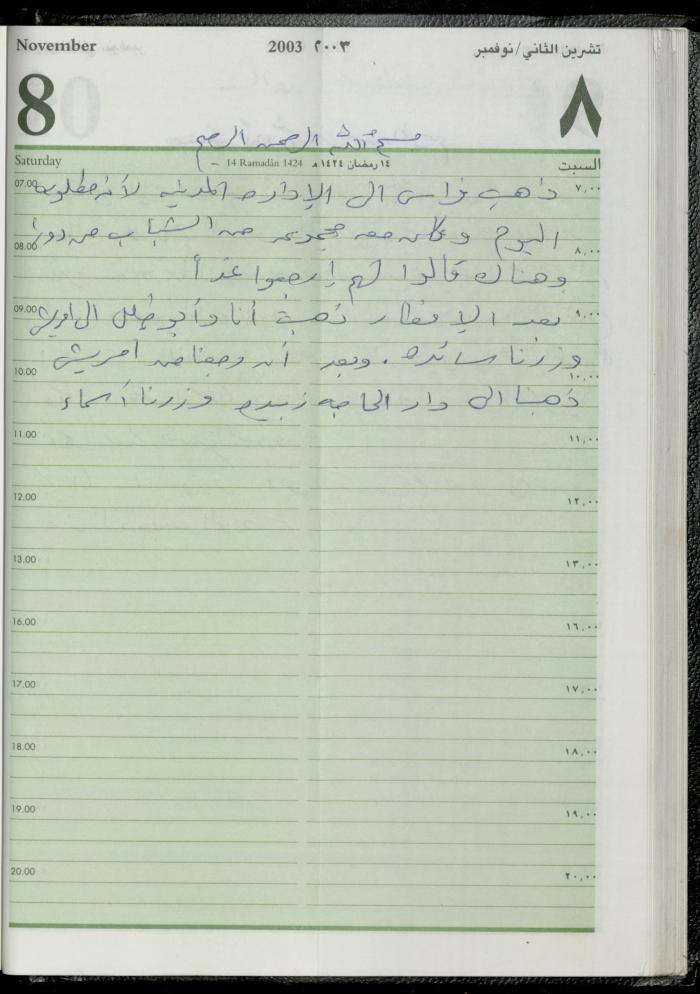 November 2003 ٢٠٠٣ تشرين الثاني/نوفمبر
8 ٨
بسم الله الرحمن الرحيم
Saturday 14 Ramadān 1424 - ١٤ رمضان ١٤٢٤ هـ السبت
07.00 ذهب فراس الى الإداره المدنيه لأنه مطلوب ٧,٠٠
اليوم وكان معه مجموعه من الشباب من دورا
08.00 ٨,٠٠
وهناك قالوا لهم إرجعوا غداً
09.00 بعد الإفطار ذهبت أنا وأبو الى امريش ٩,٠٠
وزرنا سائده . وبعد أن رجعنا من امريش
10.00 ١٠,٠٠
ذهبنا الى دار الحاجه زبيده وزرنا أسماء
11.00 ١١,٠٠
12.00 ١٢,٠٠
13.00 ١٣,٠٠
16.00 ١٦,٠٠
17.00 ١٧,٠٠
18.00 ١٨,٠٠
19.00 ١٩,٠٠
20.00 ٢٠,٠٠